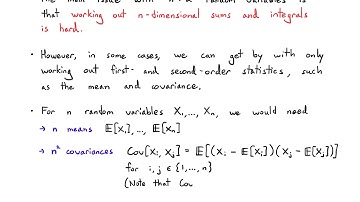 The main issue with n > 2 random variables is
that working out n-dimensional sums and integrals
is hard.
• However, in some cases, we can get by with only
working out first- and second-order statistics, such
as the mean and covariance.
• For n random variables X₁,..., Xₙ, we would need
→ n means 𝔼[X₁],..., 𝔼[Xₙ]
→ n² covariances Cov[Xᵢ, Xⱼ] = 𝔼[(Xᵢ − 𝔼[Xᵢ])(Xⱼ − 𝔼[Xⱼ])]
for i, j ∈ {1,..., n}
(Note that Cov